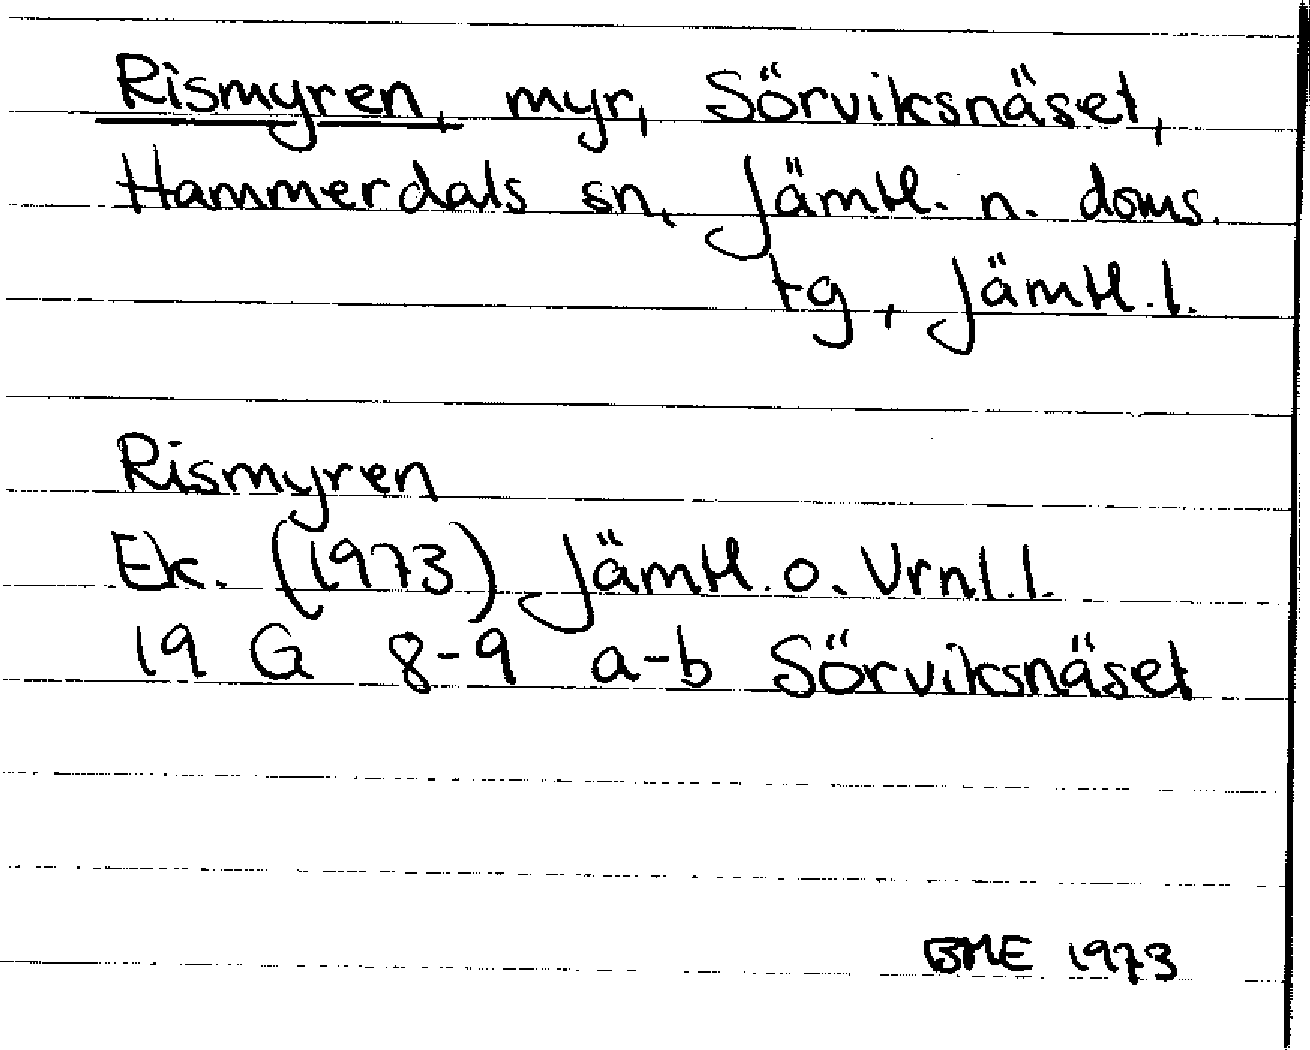 Rismyren, myr, Sörviksnäset,
Hammerdals sn, Jämtl. n. doms.
tg, Jämtl. l.
Rismyren
Ek. (1973) Jämtl. o. Vrnl. l.
19 G 8-9 a-b Sörviksnäset
BME 1973